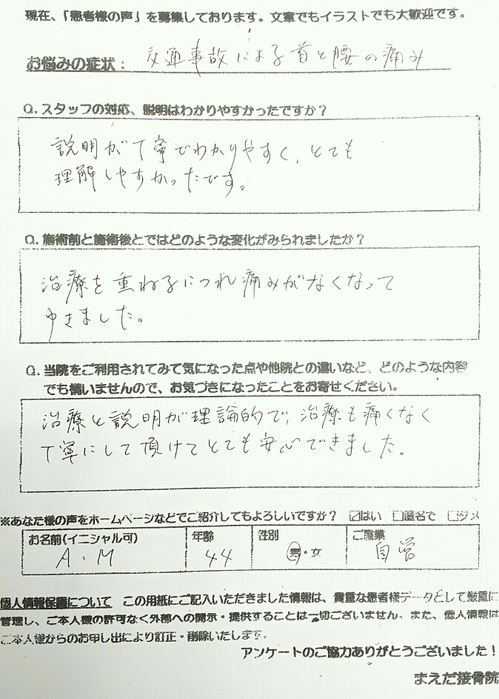 現在、「患者様の声」を募集しております。文章でもイラストでも大歓迎です。
お悩みの症状： 交通事故による首と腰の痛み
Q. スタッフの対応、説明はわかりやすかったですか？
説明が丁寧でわかりやすく、とても
理解しやすかったです。
Q. 施術前と施術後とではどのような変化がみられましたか？
治療を重ねるにつれ痛みがなくなって
ゆきました。
Q. 当院をご利用されてみて気になった点や他院との違いなど、どのような内容
でも構いませんので、お気づきになったことをお寄せください。
治療と説明が理論的で、治療も痛くなく
丁寧にして頂けてとても安心できました。
※あなた様の声をホームページなどでご紹介してもよろしいですか？ ☑はい □匿名で □ダメ
お名前(イニシャル可) 年齢 性別 ご職業
A.M 44 男・女 自営
個人情報保護について この用紙にご記入いただきました情報は、貴重な患者様データとして厳重に
管理し、ご本人様の許可なく外部への開示・提供することは一切ございません。また、個人情報は
ご本人様からのお申し出により訂正・削除いたします。
アンケートのご協力ありがとうございました！
まえだ接骨院